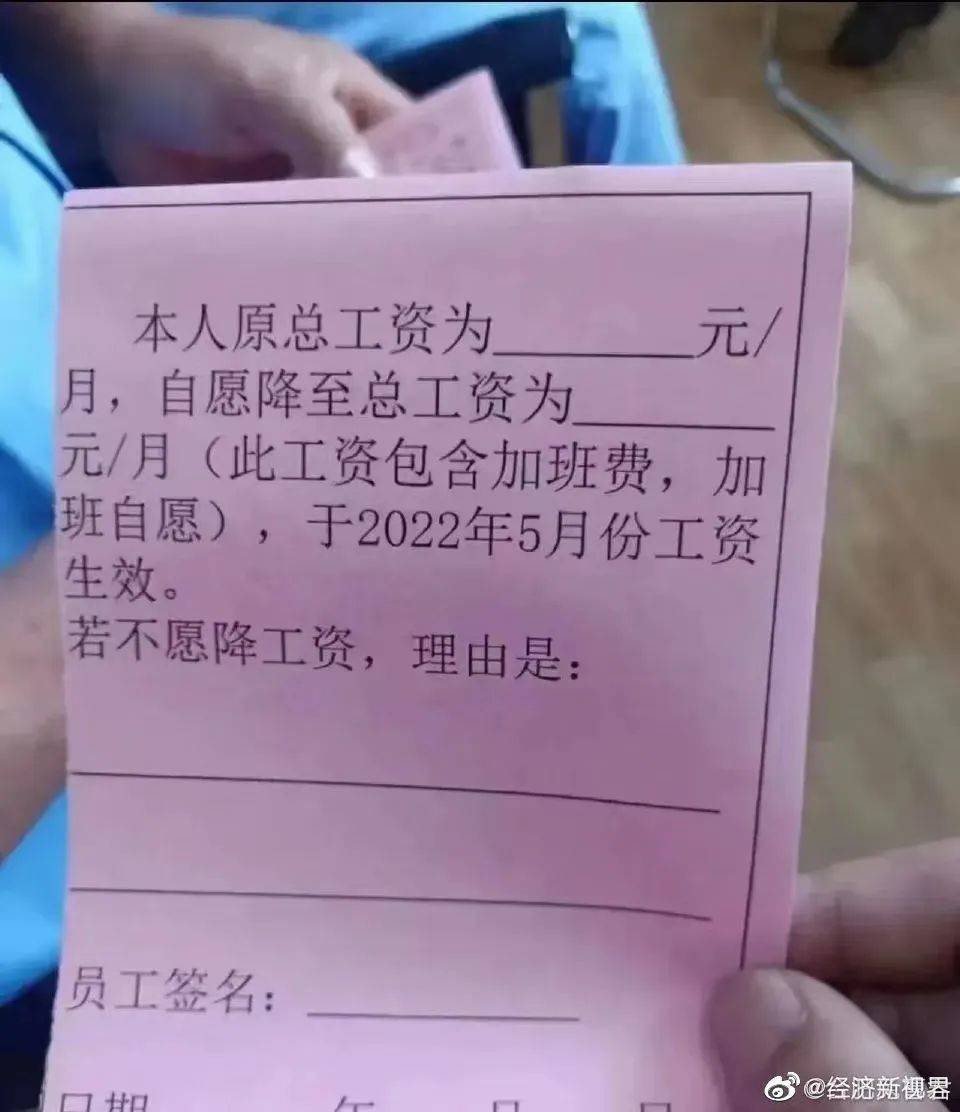 本人原总工资为_______元/
月，自愿降至总工资为_______
元/月（此工资包含加班费，加
班自愿），于2022年5月份工资
生效。
若不愿降工资，理由是：
员工签名：
日期 年 月 日
@经济新视界